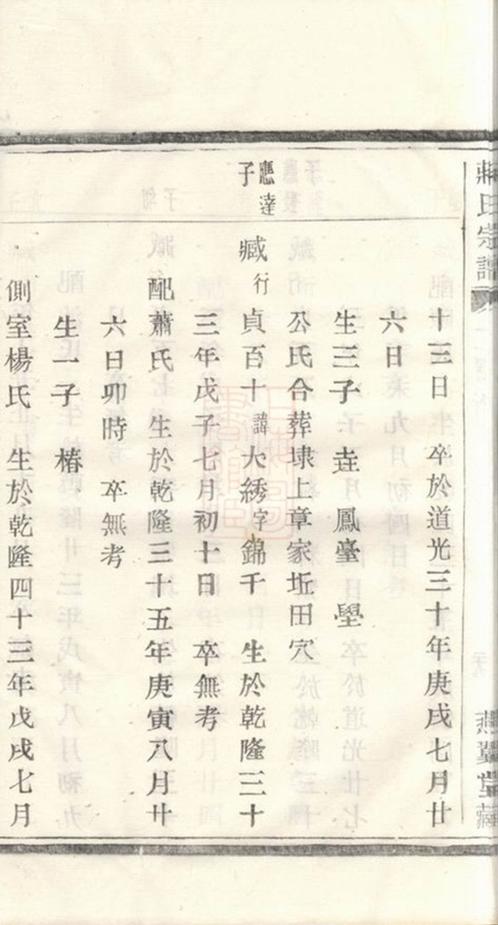 蔣氏宗譜
燕翼堂
十三日 卒於道光三十年庚戌七月廿
六日
生三子 垚 鳳臺 壂
公氏合葬埭上章家坵田穴
應達子
臧行貞百十諱大綉字錦千 生於乾隆三十
三年戊子七月初十日 卒無考
配蕭氏 生於乾隆三十五年庚寅八月廿
六日卯時 卒無考
生一子 椿
側室楊氏 生於乾隆四十三年戊戌七月